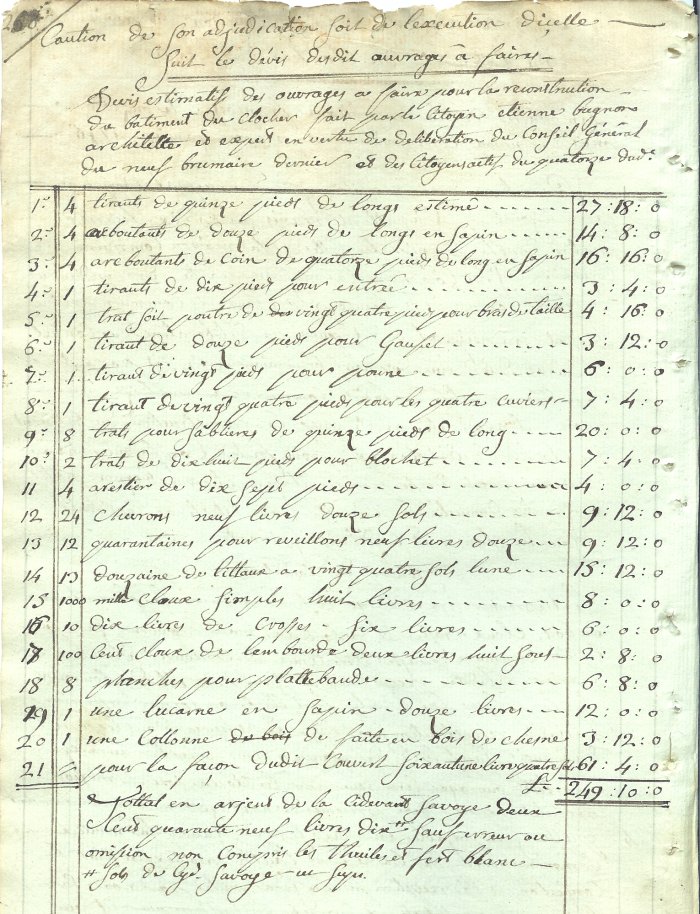 Caution de son adjudication soit de l'execution d'icelle —
Suit le dévis desdit ouvrages à faires —
Devis estimatif des ouvrages a faire pour la reconstruction
du batiment du clocher fait par le Citoyen etienne
architette et expert en vertu de deliberation du Conseil Général
du neuf brumaire dernier et des Citoyens actifs du quatorze dud.t
1.° 4 tirants de quinze pieds de longs estimé 27 : 18 : 0
2.° 4 arcboutants de douze pieds de longs en sapin 14 : 8 : 0
3.° 4 arcboutants de coin de quatorze pieds de long en sapin 16 : 16 : 0
4.° 1 tirants de dix pied pour entrée 3 : 4 : 0
5.° 1 trat soit poutre de vingt quatre pied pour bras de taille 4 : 16 : 0
6.° 1 tirant de douze pieds pour 3 : 12 : 0
7.° 1 tirant de vingt pieds pour poune 6 : 0 : 0
8.° 1 tirant de vingt quatre pieds pour les quatre cuviers 7 : 4 : 0
9.° 8 trats pour sablieres de quinze pieds de long 20 : 0 : 0
10.° 2 trats de dix huit pieds pour blochet 7 : 4 : 0
11 4 arestier de dix sept pieds 4 : 0 : 0
12 24 chevrons neuf livres douze sols 9 : 12 : 0
13 12 quarantaines pour reveillons neuf livres douze 9 : 12 : 0
14 13 douzaine de littaux a vingt quatre sols lune 15 : 12 : 0
15 1000 mille cloux simples huit livres 8 : 0 : 0
16 10 dix livres de crosses - six livres 6 : 0 : 0
17 100 Cent cloux de lambourde deux livres huit sous 2 : 8 : 0
18 8 planches pour plattebande 6 : 8 : 0
19 1 une lucarne en sapin - douze livres 12 : 0 : 0
20 1 une Collonne de bois de faite en bois de chesne 3 : 12 : 0
21 pour la façon dudit Couvert soixante une livre quatre sol 61 : 4 : 0
£ 249 : 10 : 0
Tottal en arjent de la cidevant Savoye deux
Cent quarante neuf livres dix # sauf erreur ou
omission non compris les thuiles et fert blanc —
# sols de Savoye